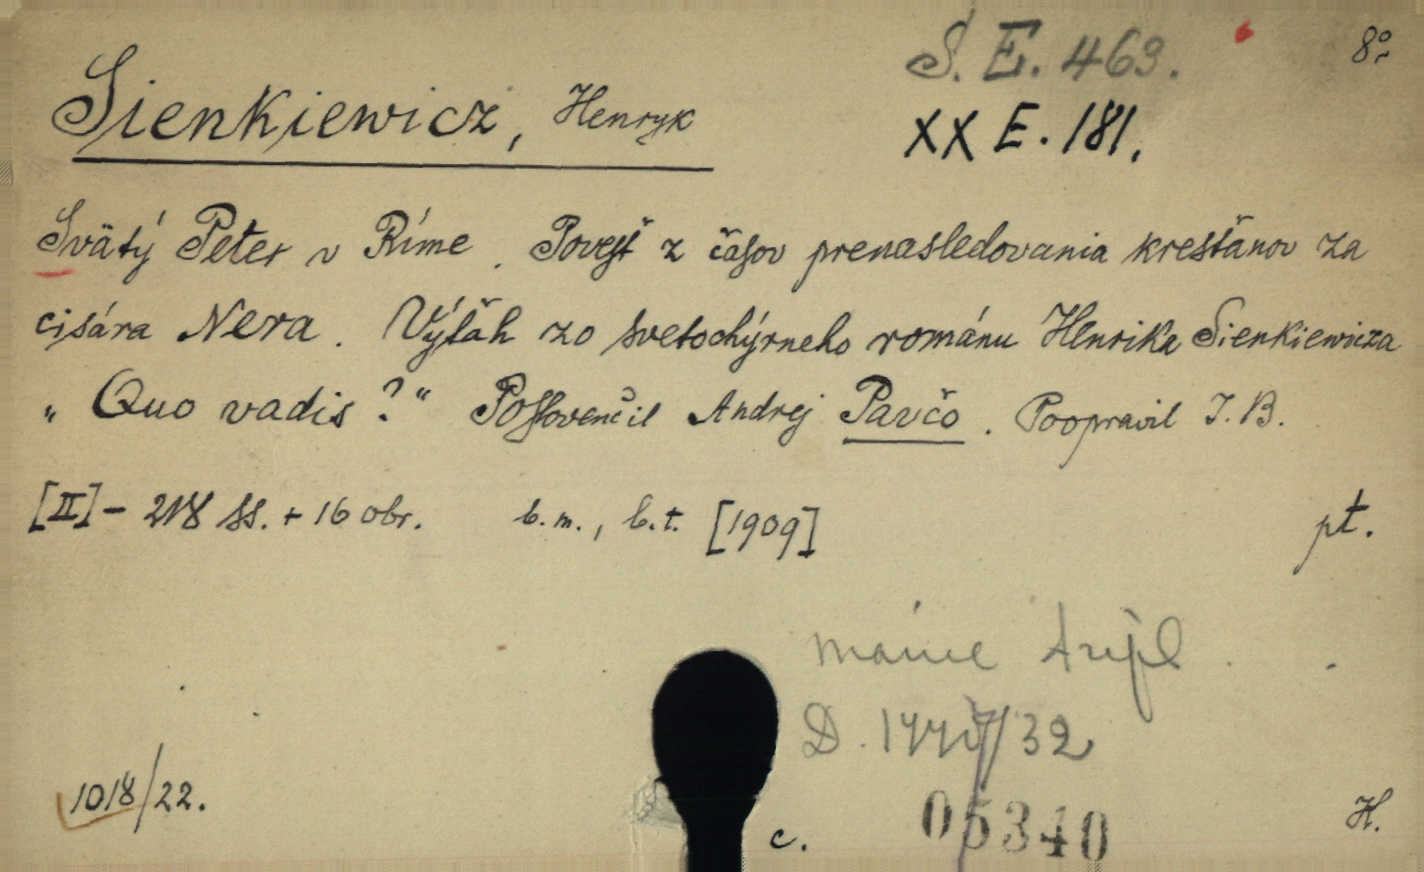 S. E. 463.
8º
Sienkiewicz, Henryk
XX E. 181.
Svätý Peter v Ríme. Povesť z časov prenasledovania kresťanov za
cisára Nera. Výťah zo svetochýrneho románu Henrika Sienkiewicza
„Quo vadis?“ Poslovenčil Andrej Pavčo. Poopravil J. B.
[II] - 218 ss. + 16 obr. b. m., b. t. [1909]
pt.
máme
D.
/32
1018/22.
c.
05340
H.